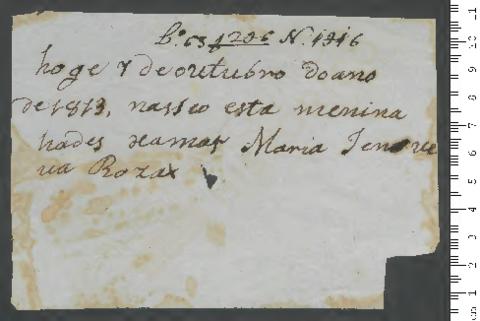 N. 1916
hoge 7 de outubro do ano
de 1813, nasseo esta menina
hades xamar Maria Jenove
va Roza